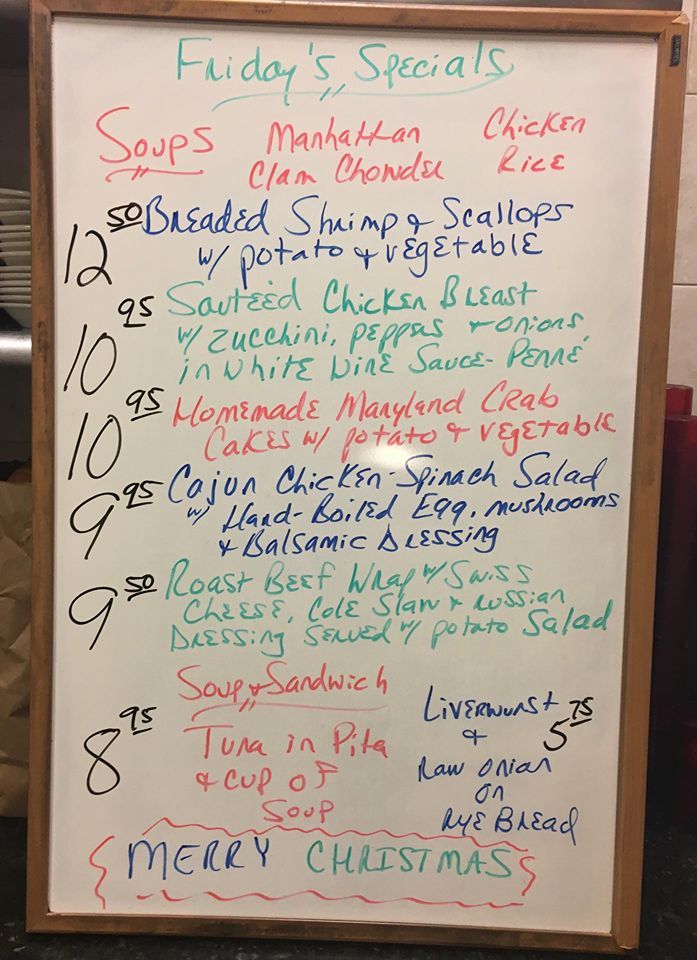 Friday's Specials
Soups Manhattan Clam Chowder Chicken Rice
12 50 Breaded Shrimp & Scallops
w/ potato & vegetable
10 95 Sauteèd Chicken Breast
w/ zucchini, peppers & onions,
in White Wine Sauce - Penné
10 95 Homemade Maryland Crab
Cakes w/ potato & vegetable
9 95 Cajun Chicken-Spinach Salad
w/ Hard-Boiled Egg, mushrooms
& Balsamic Dressing
9 50 Roast Beef Wrap w/ Swiss
Cheese, Cole Slaw & russian
Dressing Served w/ potato Salad
Soup & Sandwich
8 95 Tuna in Pita
& cup of
Soup
Liverwurst 5 75
&
Raw onion
on
Rye Bread
MERRY CHRISTMAS